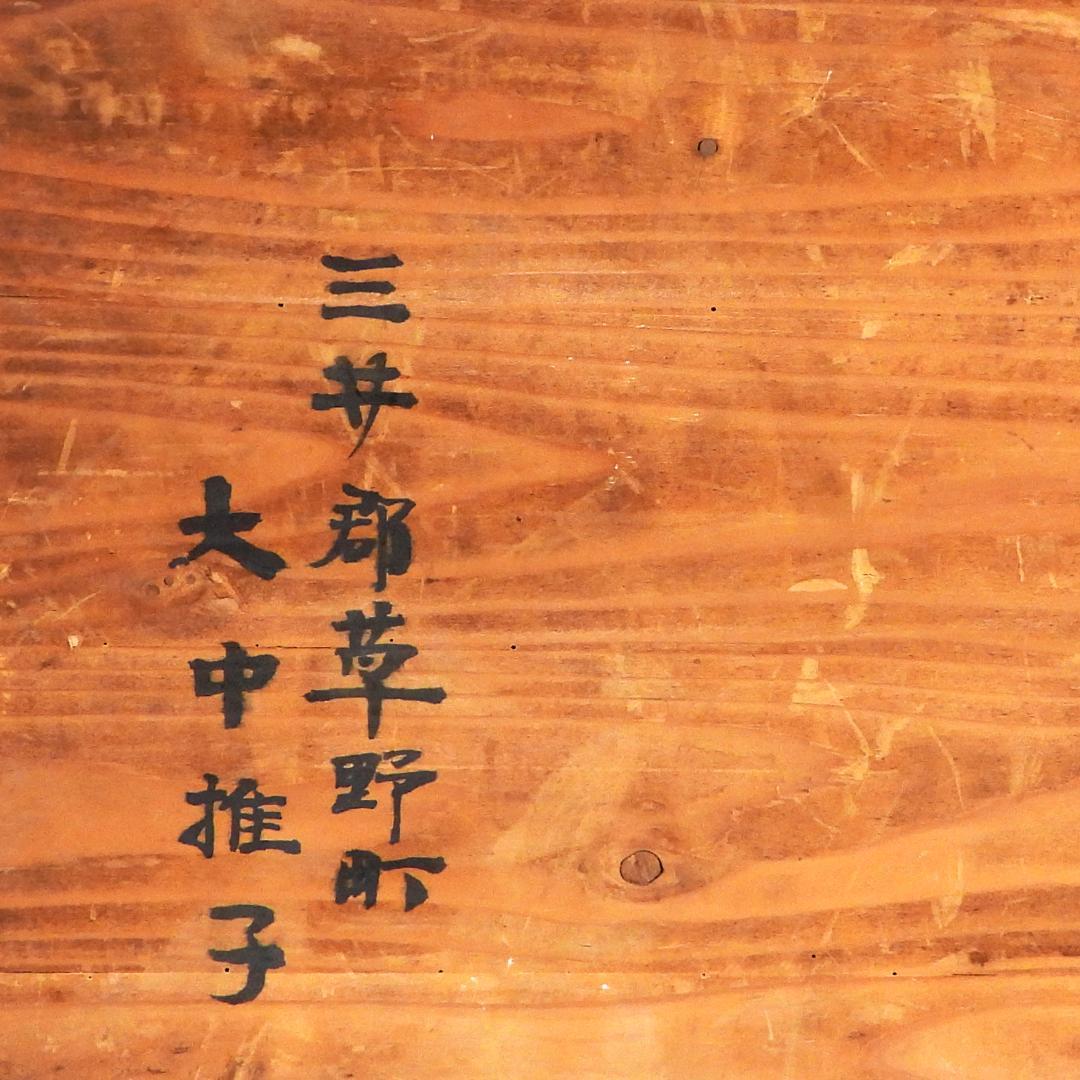 三井郡草野町
大中推子